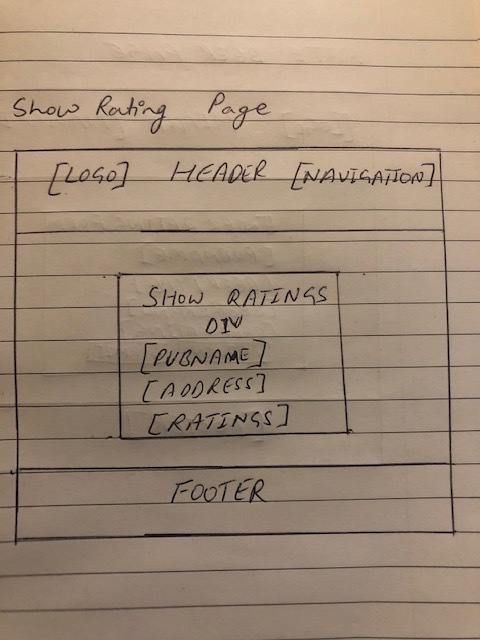 Show Rating Page
[LOGO] HEADER [NAVIGATION]
SHOW RATINGS
DIV
[PUBNAME]
[ADDRESS]
[RATINGS]
FOOTER